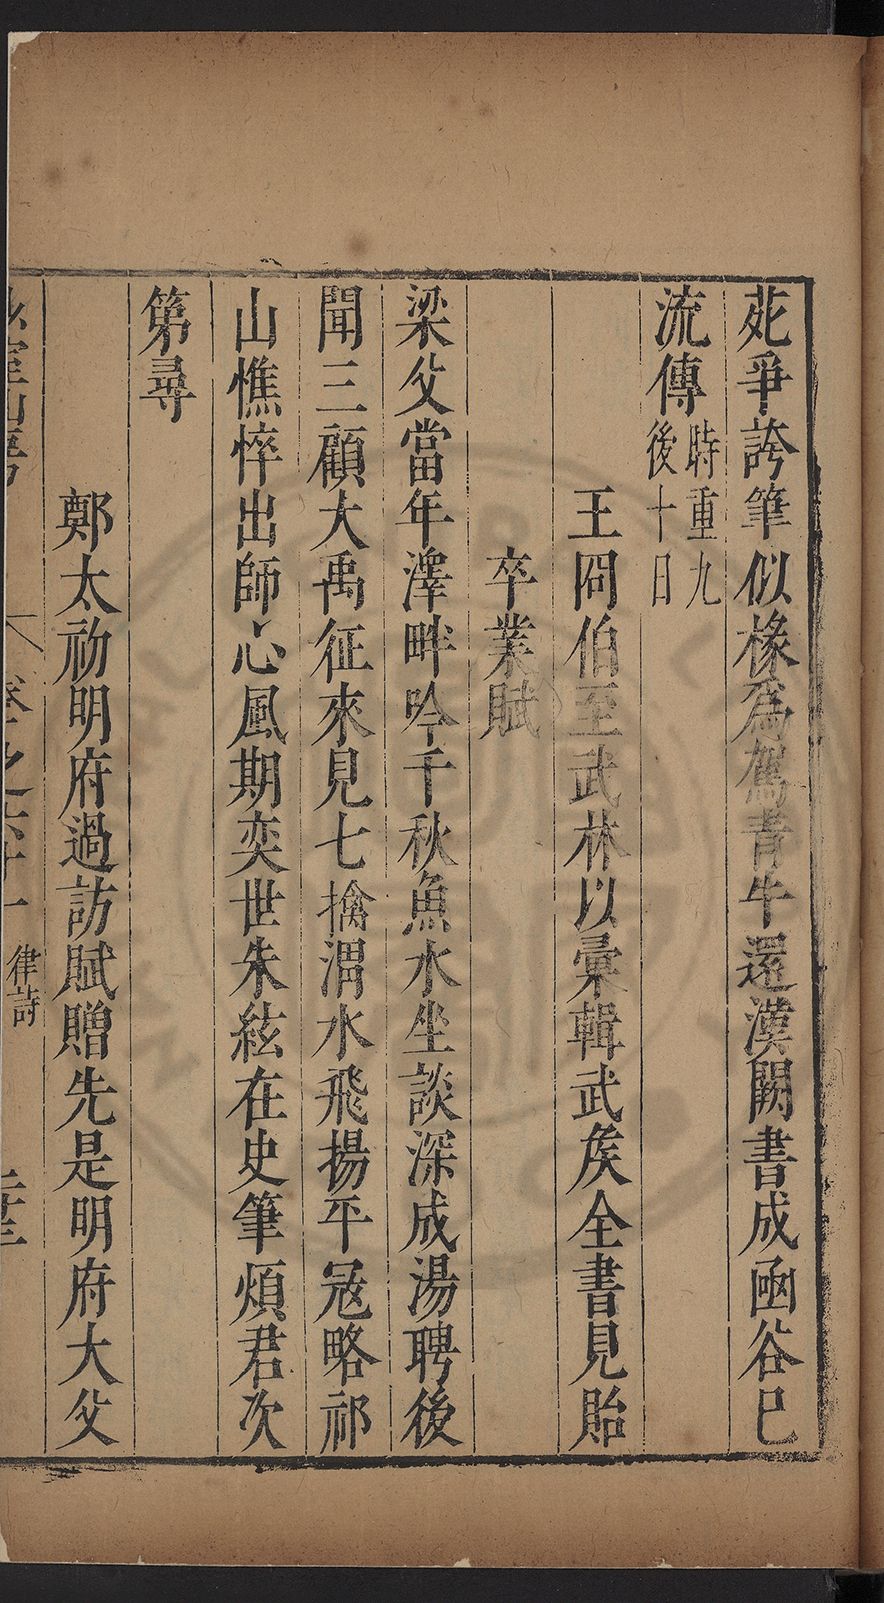 苑爭誇筆似椽爲駕青牛還漢闕書成函谷已
流傳時重九後十日
王冏伯至武林以彚輯武矦全書見貽
卒業賦
梁父當年澤畔吟千秋魚水坐談深成湯聘後
聞三顧大禹征來見七擒渭水飛揚平冦略祁
山憔悴出師心風期奕世朱絃在史筆煩君次
第尋
鄭太初明府過訪賦贈先是明府大父
山房
卷之六十一
律詩